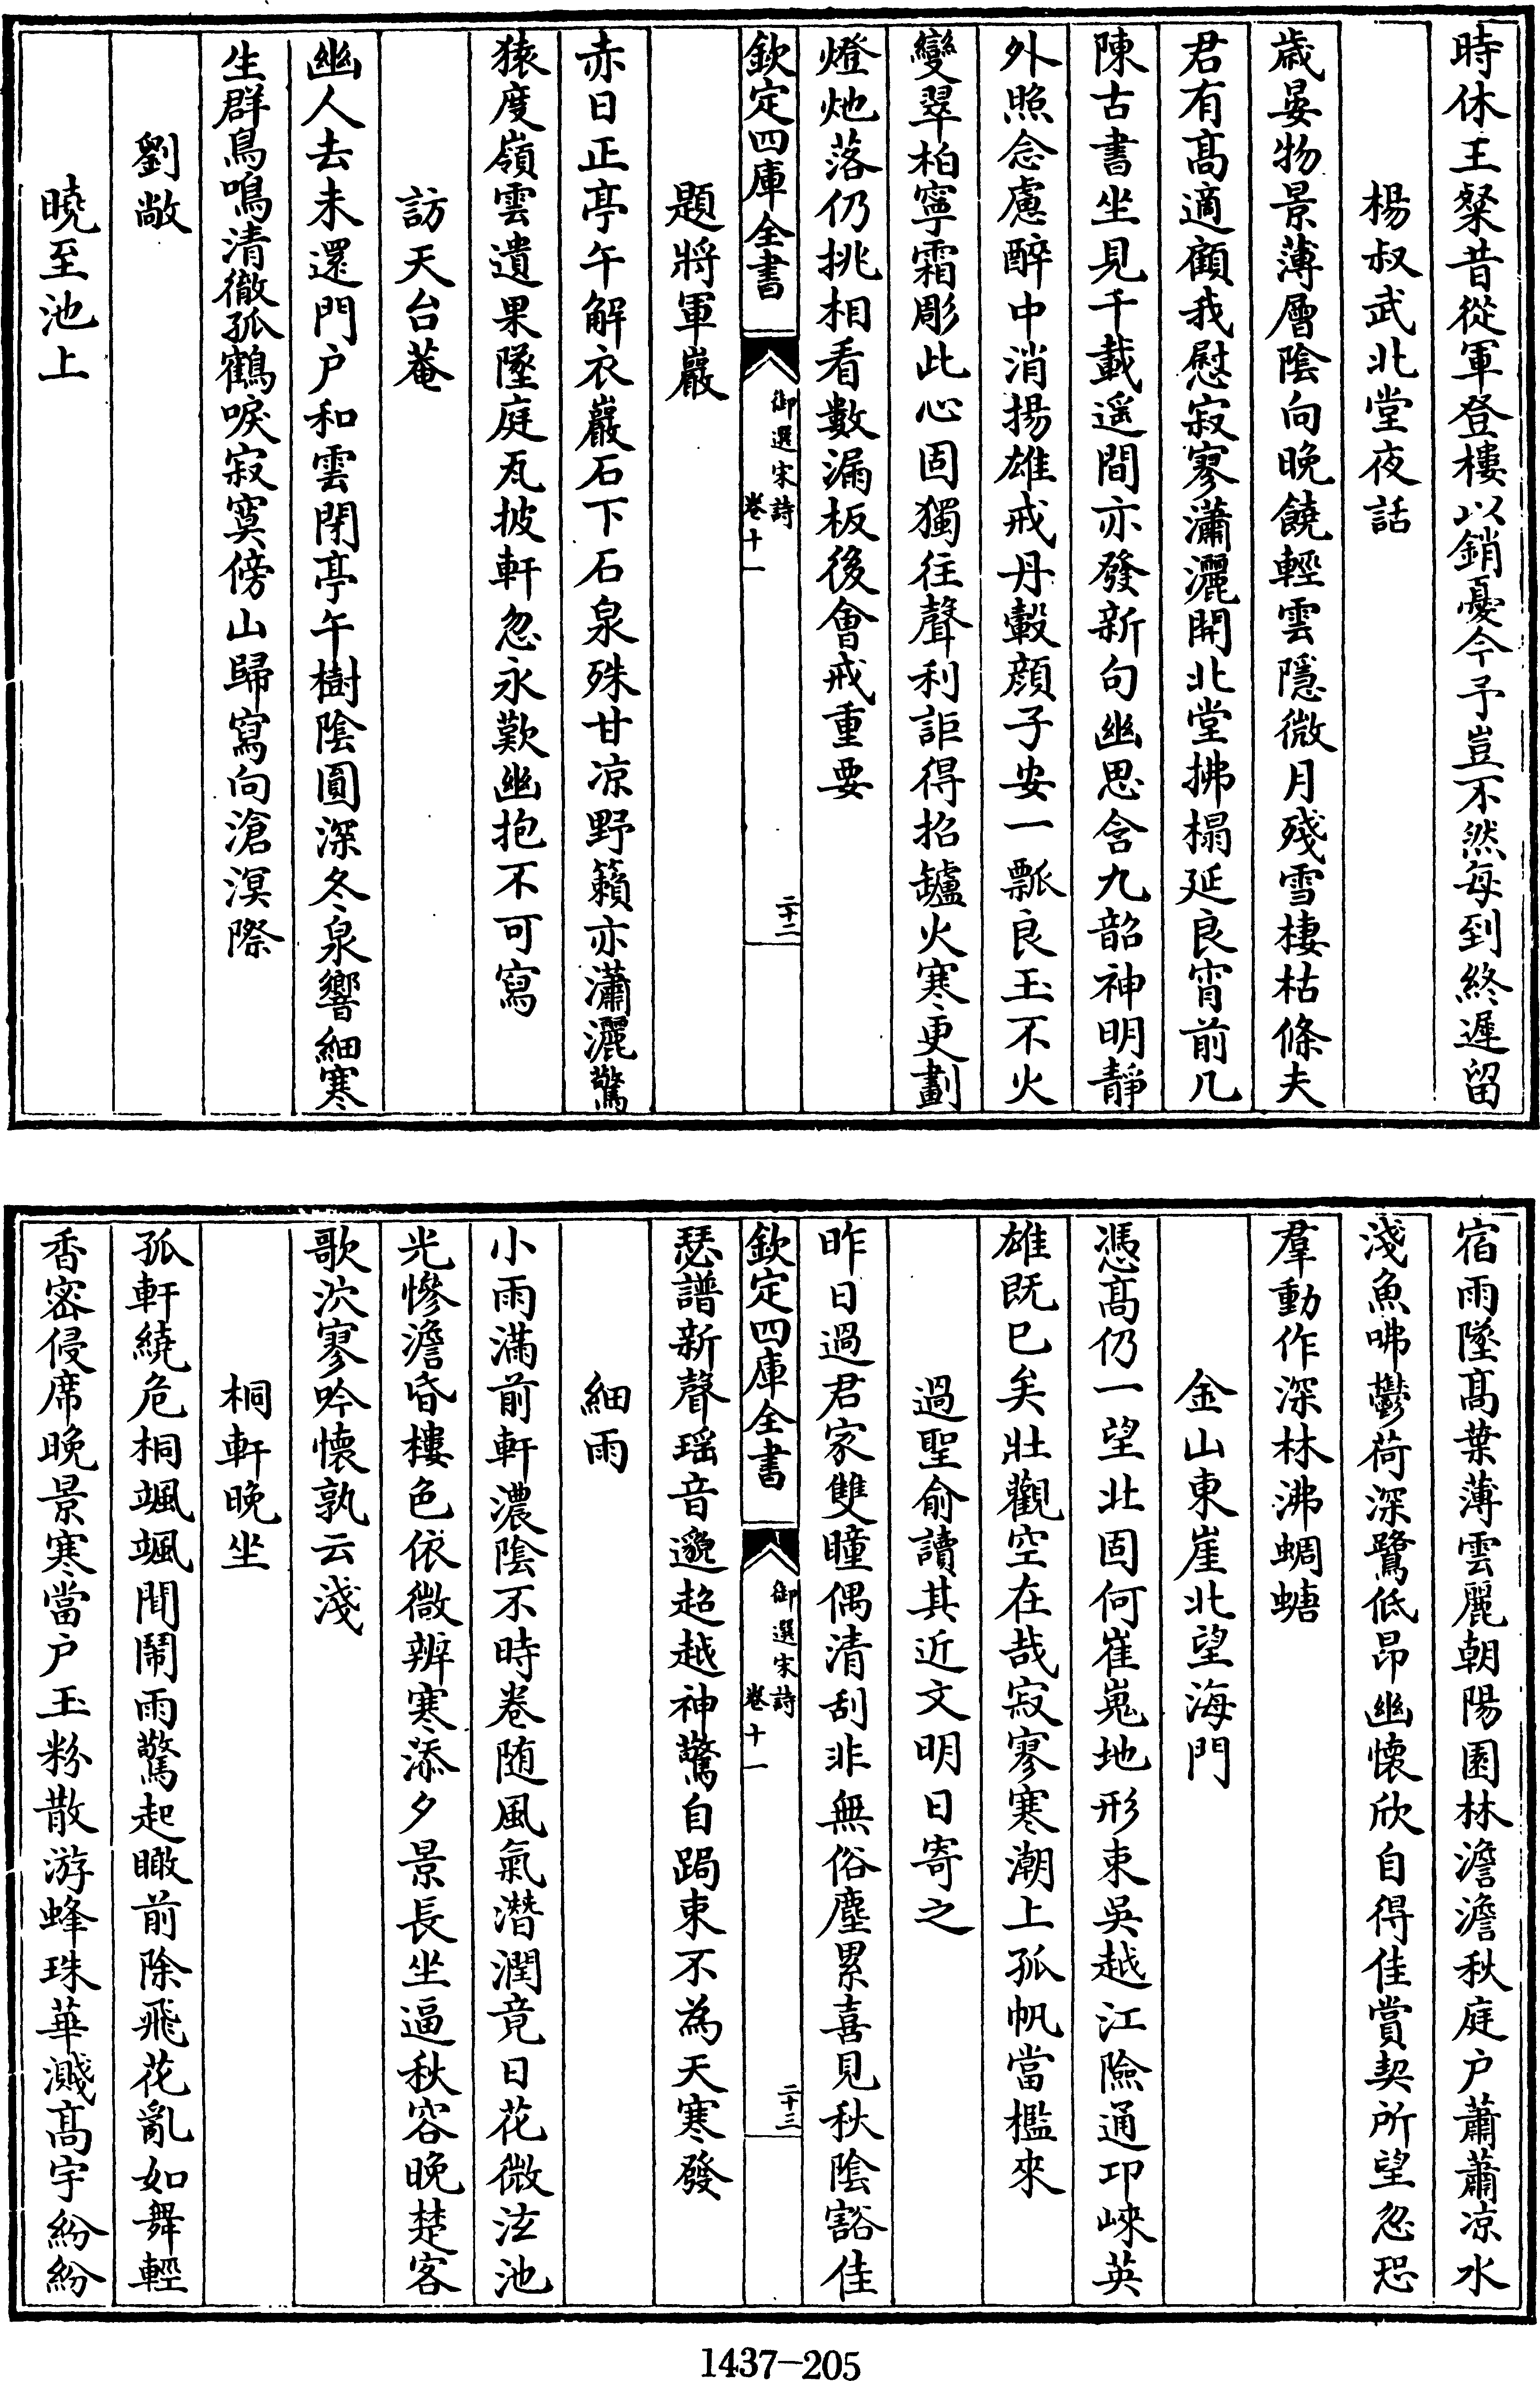 時休王粲昔從軍登樓以銷憂今予豈不然每到終遲留
楊叔武北堂夜話
歲晏物景薄層陰向晚饒輕雲隱微月殘雪棲枯條夫
君有高適顧我慰寂寥瀟灑開北堂拂榻延良宵前几
陳古書坐見千載遥間亦發新句幽思含九韶神明靜
外照念慮醉中消揚雄戒丹轂顔子安一瓢良玉不火
變翠柏寧霜彫此心固獨往聲利詎得招鑪火寒更劃
燈灺落仍挑相看數漏板後會戒重要
欽定四庫全書
御選宋詩
卷十一
二十二
題將軍巖
赤日正亭午解衣巖石下石泉殊甘凉野籟亦瀟灑驚
猿度嶺雲遺果墜庭瓦披軒忽永歎幽抱不可寫
訪天台菴
幽人去未還門户和雲閉亭午樹陰圓深冬泉響細寒
生群鳥鳴清徹孤鶴唳寂寞傍山歸寫向滄溟際
劉敞
曉至池上
宿雨墜高葉薄雲麗朝陽園林澹澹秋庭户蕭蕭凉水
淺魚咈鬱荷深鷺低昂幽懷欣自得佳賞契所望忽恐
羣動作深林沸蜩螗
金山東崖北望海門
憑高仍一望北固何崔嵬地形束吳越江險通邛崍英
雄既已矣壯觀空在哉寂寥寒潮上孤帆當檻來
過聖俞讀其近文明日寄之
昨日過君家雙瞳偶清刮非無俗塵累喜見秋陰豁佳
欽定四庫全書
御選宋詩
卷十一
二十三
瑟譜新聲瑶音邈超越神驚自跼束不為天寒發
細雨
小雨滿前軒濃陰不時卷随風氣潛潤竟日花微泫池
光慘澹昏樓色依微辨寒添夕景長坐逼秋容晚楚客
歌泬寥吟懷孰云淺
桐軒晚坐
孤軒繞危桐颯颯聞鬧雨驚起瞰前除飛花亂如舞輕
香密侵席晚景寒當户玉粉散游蜂珠華濺高宇紛紛
1437-205